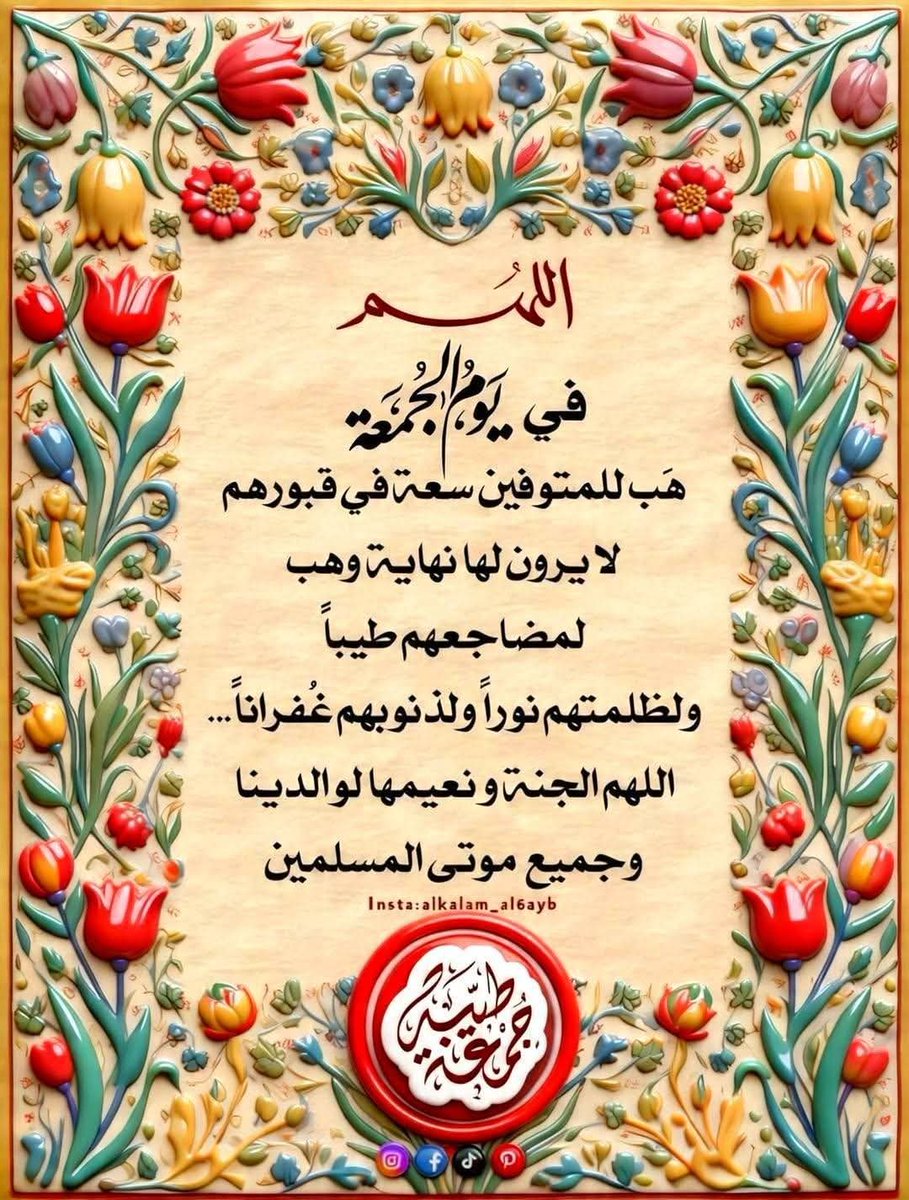 اللهم
في يَومُ الجُمعَة
هَب للمتوفين سعة في قبورهم
لا يرون لها نهاية وهب
لمضاجعهم طيباً
ولظلمتهم نوراً ولذنوبهم غُفراناً...
اللهم الجنة و نعيمها لوالدينا
وجميع موتى المسلمين
Insta:alkalam_al6ayb
جُمُعَة طيبة